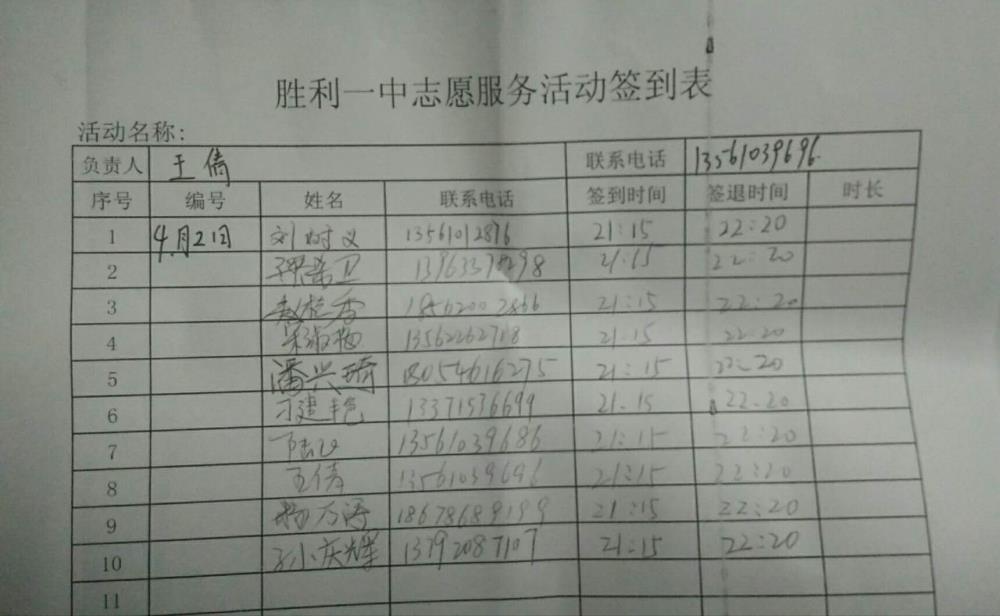 胜利一中志愿服务活动签到表
活动名称:
负责人 王倩 联系电话 13561039696.
序号 编号 姓名 联系电话 签到时间 签退时间 时长
1 4月2日 刘时义 13561012876 21:15 22:20
2 卫 13963378298 21:15 22:20
3 赵桂香 18562002866 21:15 22:20
4 宋淑梅 13562262718 21:15 22.20
5 潘兴琦 18054616275 21:15 22:20
6 刁建艳 13371536699 21.15 22.20
7 13561039686 21:15 22:20
8 王倩 13561039696 21:15 22:20
9 杨万涛 18678689199 21:15 22:20
10 孙庆辉 13792087107 21:15 22:20
11